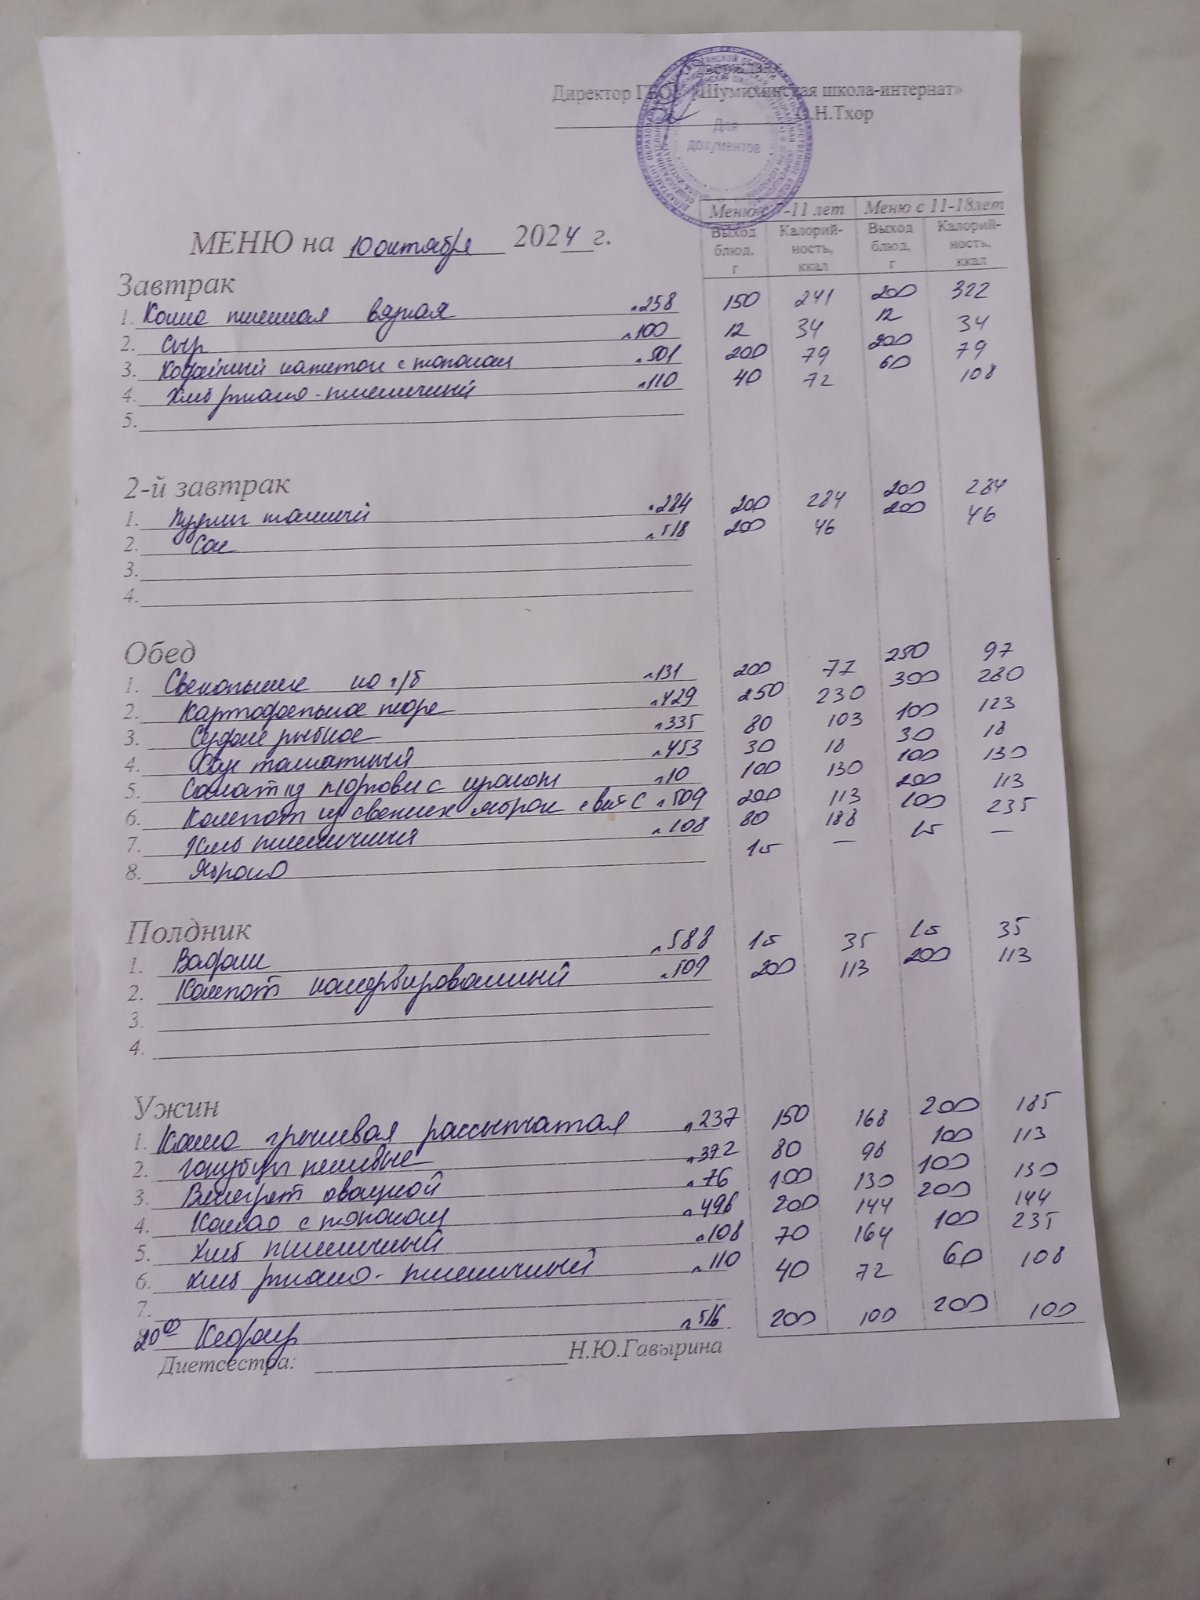 Утверждаю
Директор ГБОУ «Шумихинская школа-интернат»
Н.Тхор
Для
документов
МЕНЮ на 10 октября 2024 г.
Меню с 7-11 лет Меню с 11-18лет
Выход блюд, г Калорий-ность, ккал Выход блюд, г Калорий-ность, ккал
Завтрак
1. Каша пшенная вязкая 258 150 241 200 322
2. Сыр 100 12 34 12 34
3. Кофейный напиток с молоком 501 200 79 200 79
4. Хлеб ржано-пшеничный 110 40 72 60 108
5.
2-й завтрак
1. 284 200 284 200 284
2. Сок 518 200 46 200 46
3.
4.
Обед
1. Свекольник на м/б 131 200 77 250 97
2. Картофельное пюре 429 250 230 300 280
3. Суфле рыбное 335 80 103 100 123
4. Соус томатный 453 30 18 30 18
5. Салат из моркови с 10 100 130 100 130
6. Компот из свежих яблок с вит С 509 200 113 200 113
7. Хлеб пшеничный 108 80 188 100 235
8. Яблоко 15 — 15 —
Полдник
1. Вафли 588 15 35 15 35
2. Компот консервированный 509 200 113 200 113
3.
4.
Ужин
1. Каша гречневая рассыпчатая 237 150 168 200 185
2. Голубцы ленивые 372 80 98 100 113
3. Винегрет овощной 76 100 130 100 130
4. Какао с молоком 496 200 144 200 144
5. Хлеб пшеничный 108 70 164 100 235
6. Хлеб ржано-пшеничный 110 40 72 60 108
7.
20⁰⁰ Кефир 516 200 100 200 100
Диетсестра: Н.Ю.Гавырина